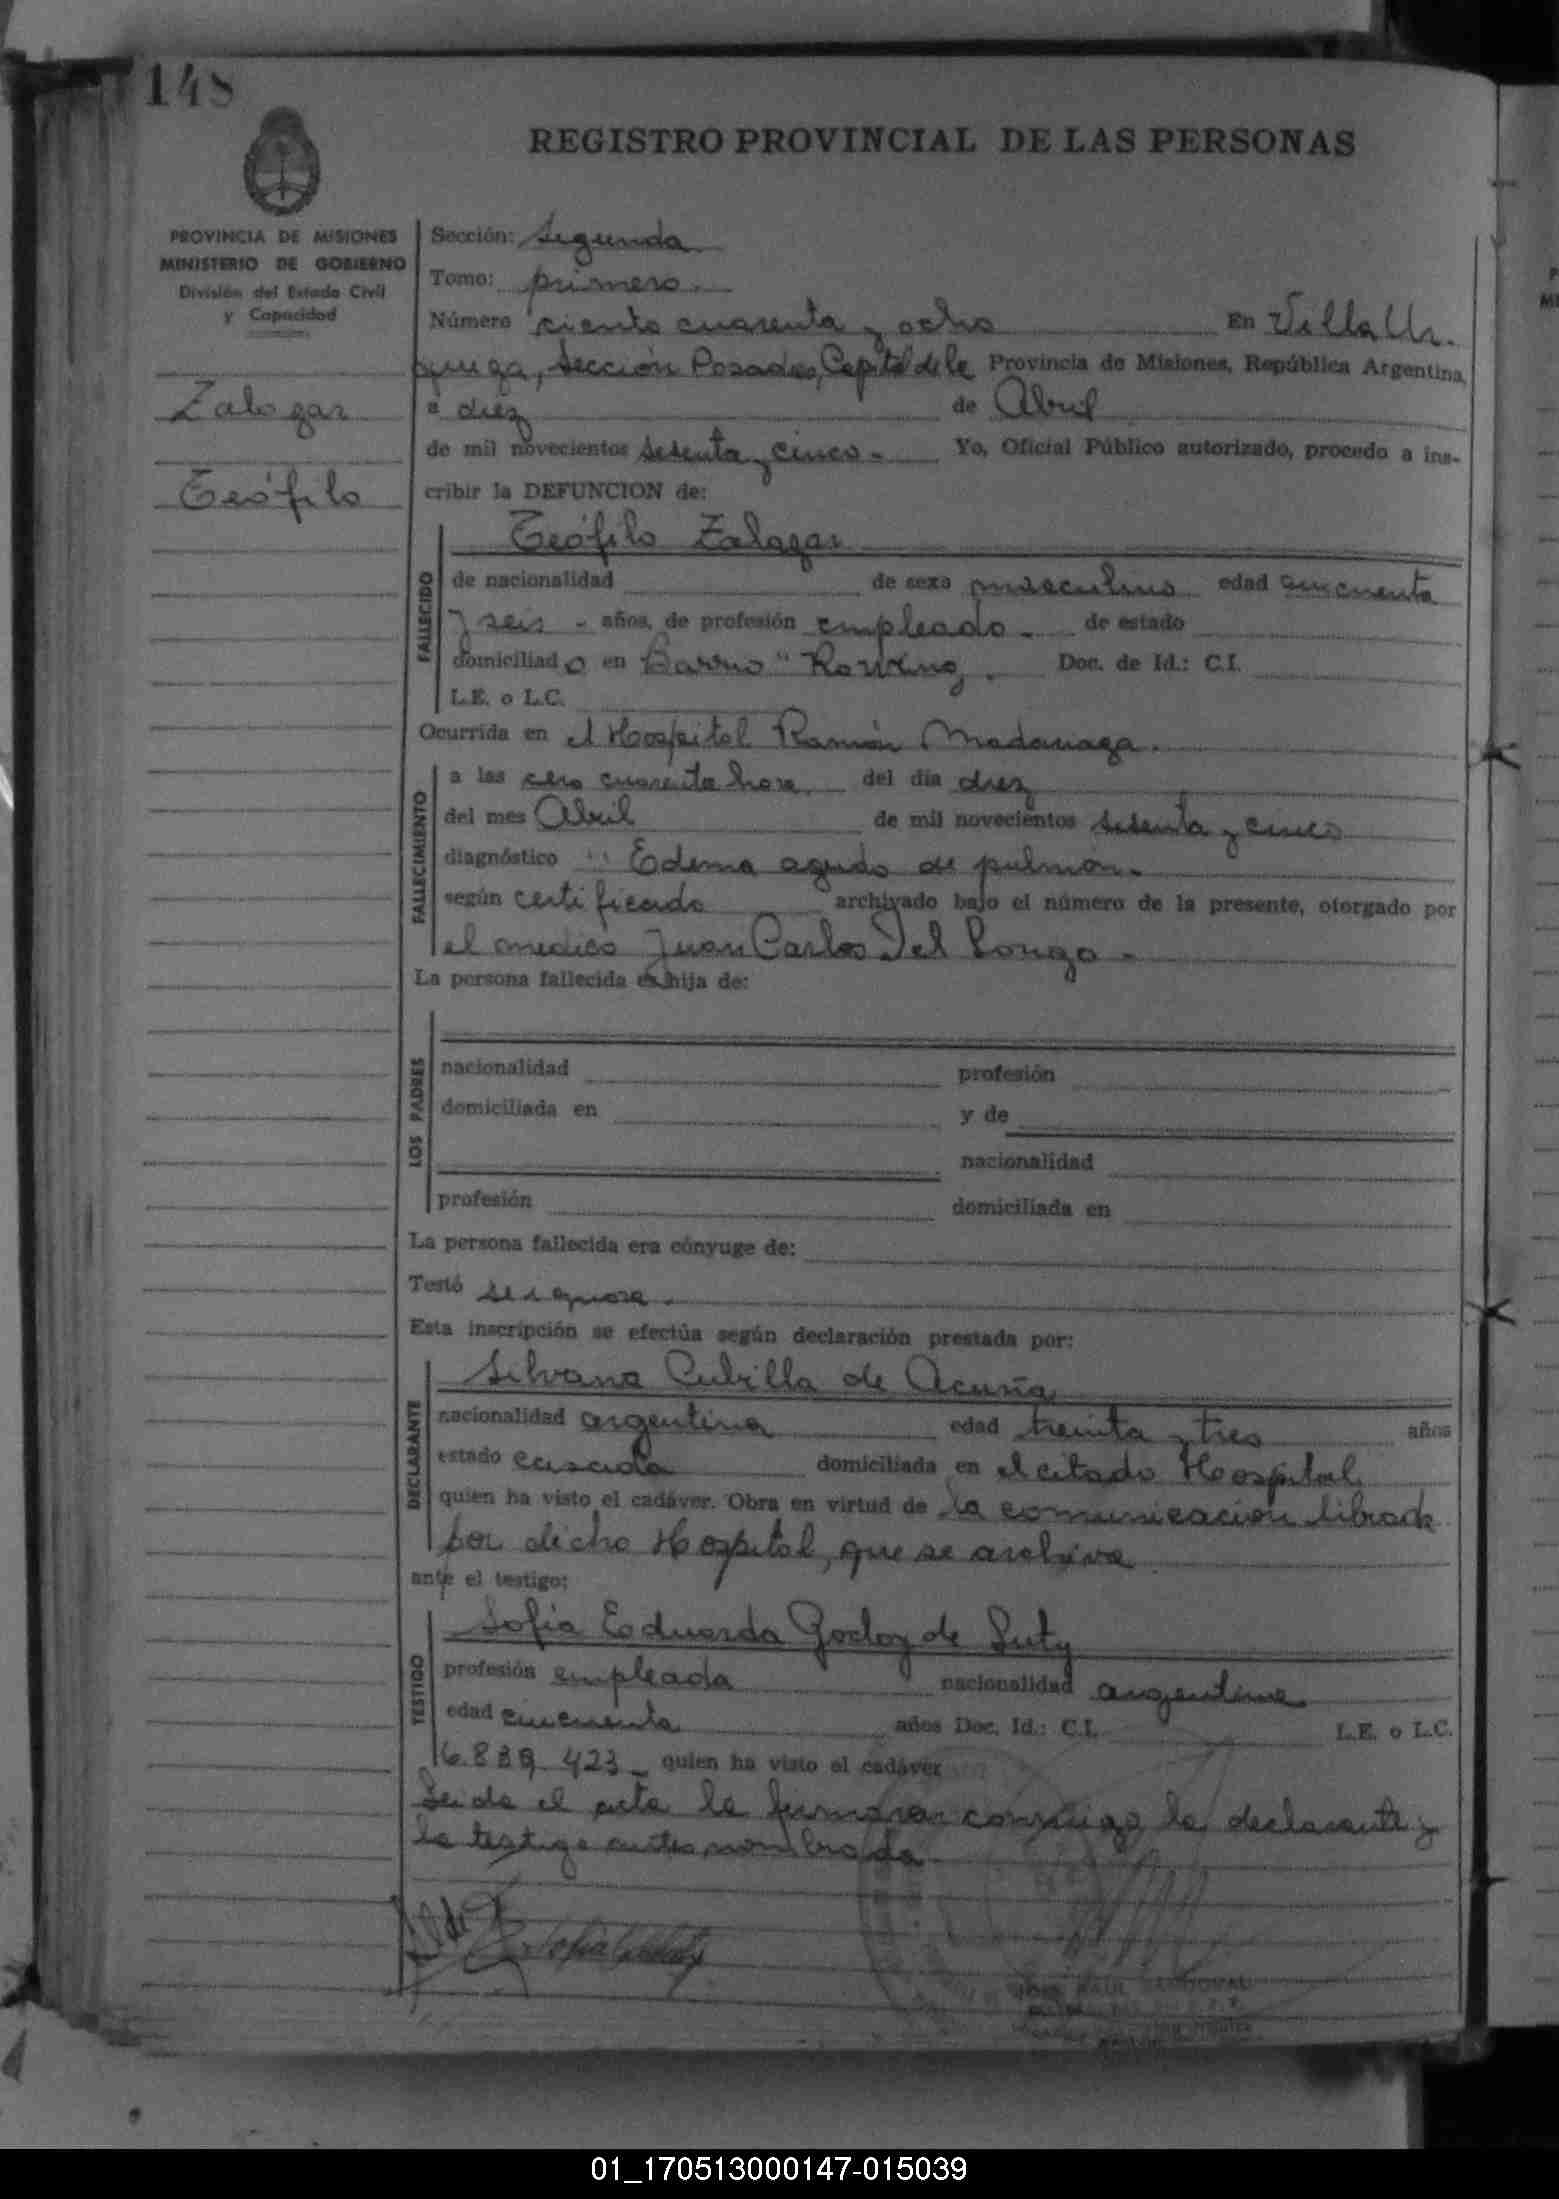 148
REGISTRO PROVINCIAL DE LAS PERSONAS
PROVINCIA DE MISIONES
MINISTERIO DE GOBIERNO
División del Estado Civil
y Capacidad
Zalazar
Teófilo
Sección: Segunda
Tomo: primero.
Número ciento cuarenta y ocho En Villa Ur-
quiza, Sección Posadas, Capital de la Provincia de Misiones, República Argentina,
a diez de Abril
de mil novecientos sesenta y cinco- Yo, Oficial Público autorizado, procedo a ins-
cribir la DEFUNCION de:
Teófilo Zalazar
FALLECIDO
de nacionalidad de sexo masculino edad cincuenta
y seis - años, de profesión empleado - de estado
domiciliado en Barrio " Doc. de Id.: C.I.
L.E. o L.C.
Ocurrida en el Hospital Ramón Madariaga.
FALLECIMIENTO
a las cero cuarenta hora del día diez
del mes Abril de mil novecientos sesenta y cinco
diagnóstico " Edema agudo de pulmón-
según certificado archivado bajo el número de la presente, otorgado por
el medico Juan Carlos Del Longo -
La persona fallecida es hija de:
LOS PADRES
nacionalidad profesión
domiciliada en y de
nacionalidad
profesión domiciliada en
La persona fallecida era cónyuge de:
Testó se ignora.
Esta inscripción se efectúa según declaración prestada por:
DECLARANTE
Silvana Cubilla de Acuña
nacionalidad argentina edad treinta y tres años
estado casada domiciliada en el citado Hospital
quien ha visto el cadáver. Obra en virtud de la comunicación librada
por dicho Hospital, que se archiva
ante el testigo:
TESTIGO
Sofia Eduarda Godoy de Luty
profesión empleada nacionalidad argentina
edad cincuenta años Doc. Id.: C.I. L.E. o L.C.
6.839.423- quien ha visto el cadáver
Leida el acta la firmaron conmigo la declarante y
la testigo antes nombrada.
RAUL SANDOVAL
01_170513000147-015039